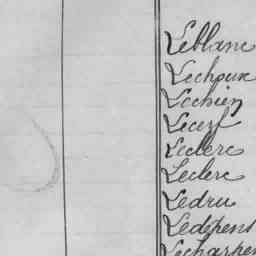 Leblanc
Lechoux
Lechien
Lecerf
Leclerc
Leclerc
Ledru
Ledépens